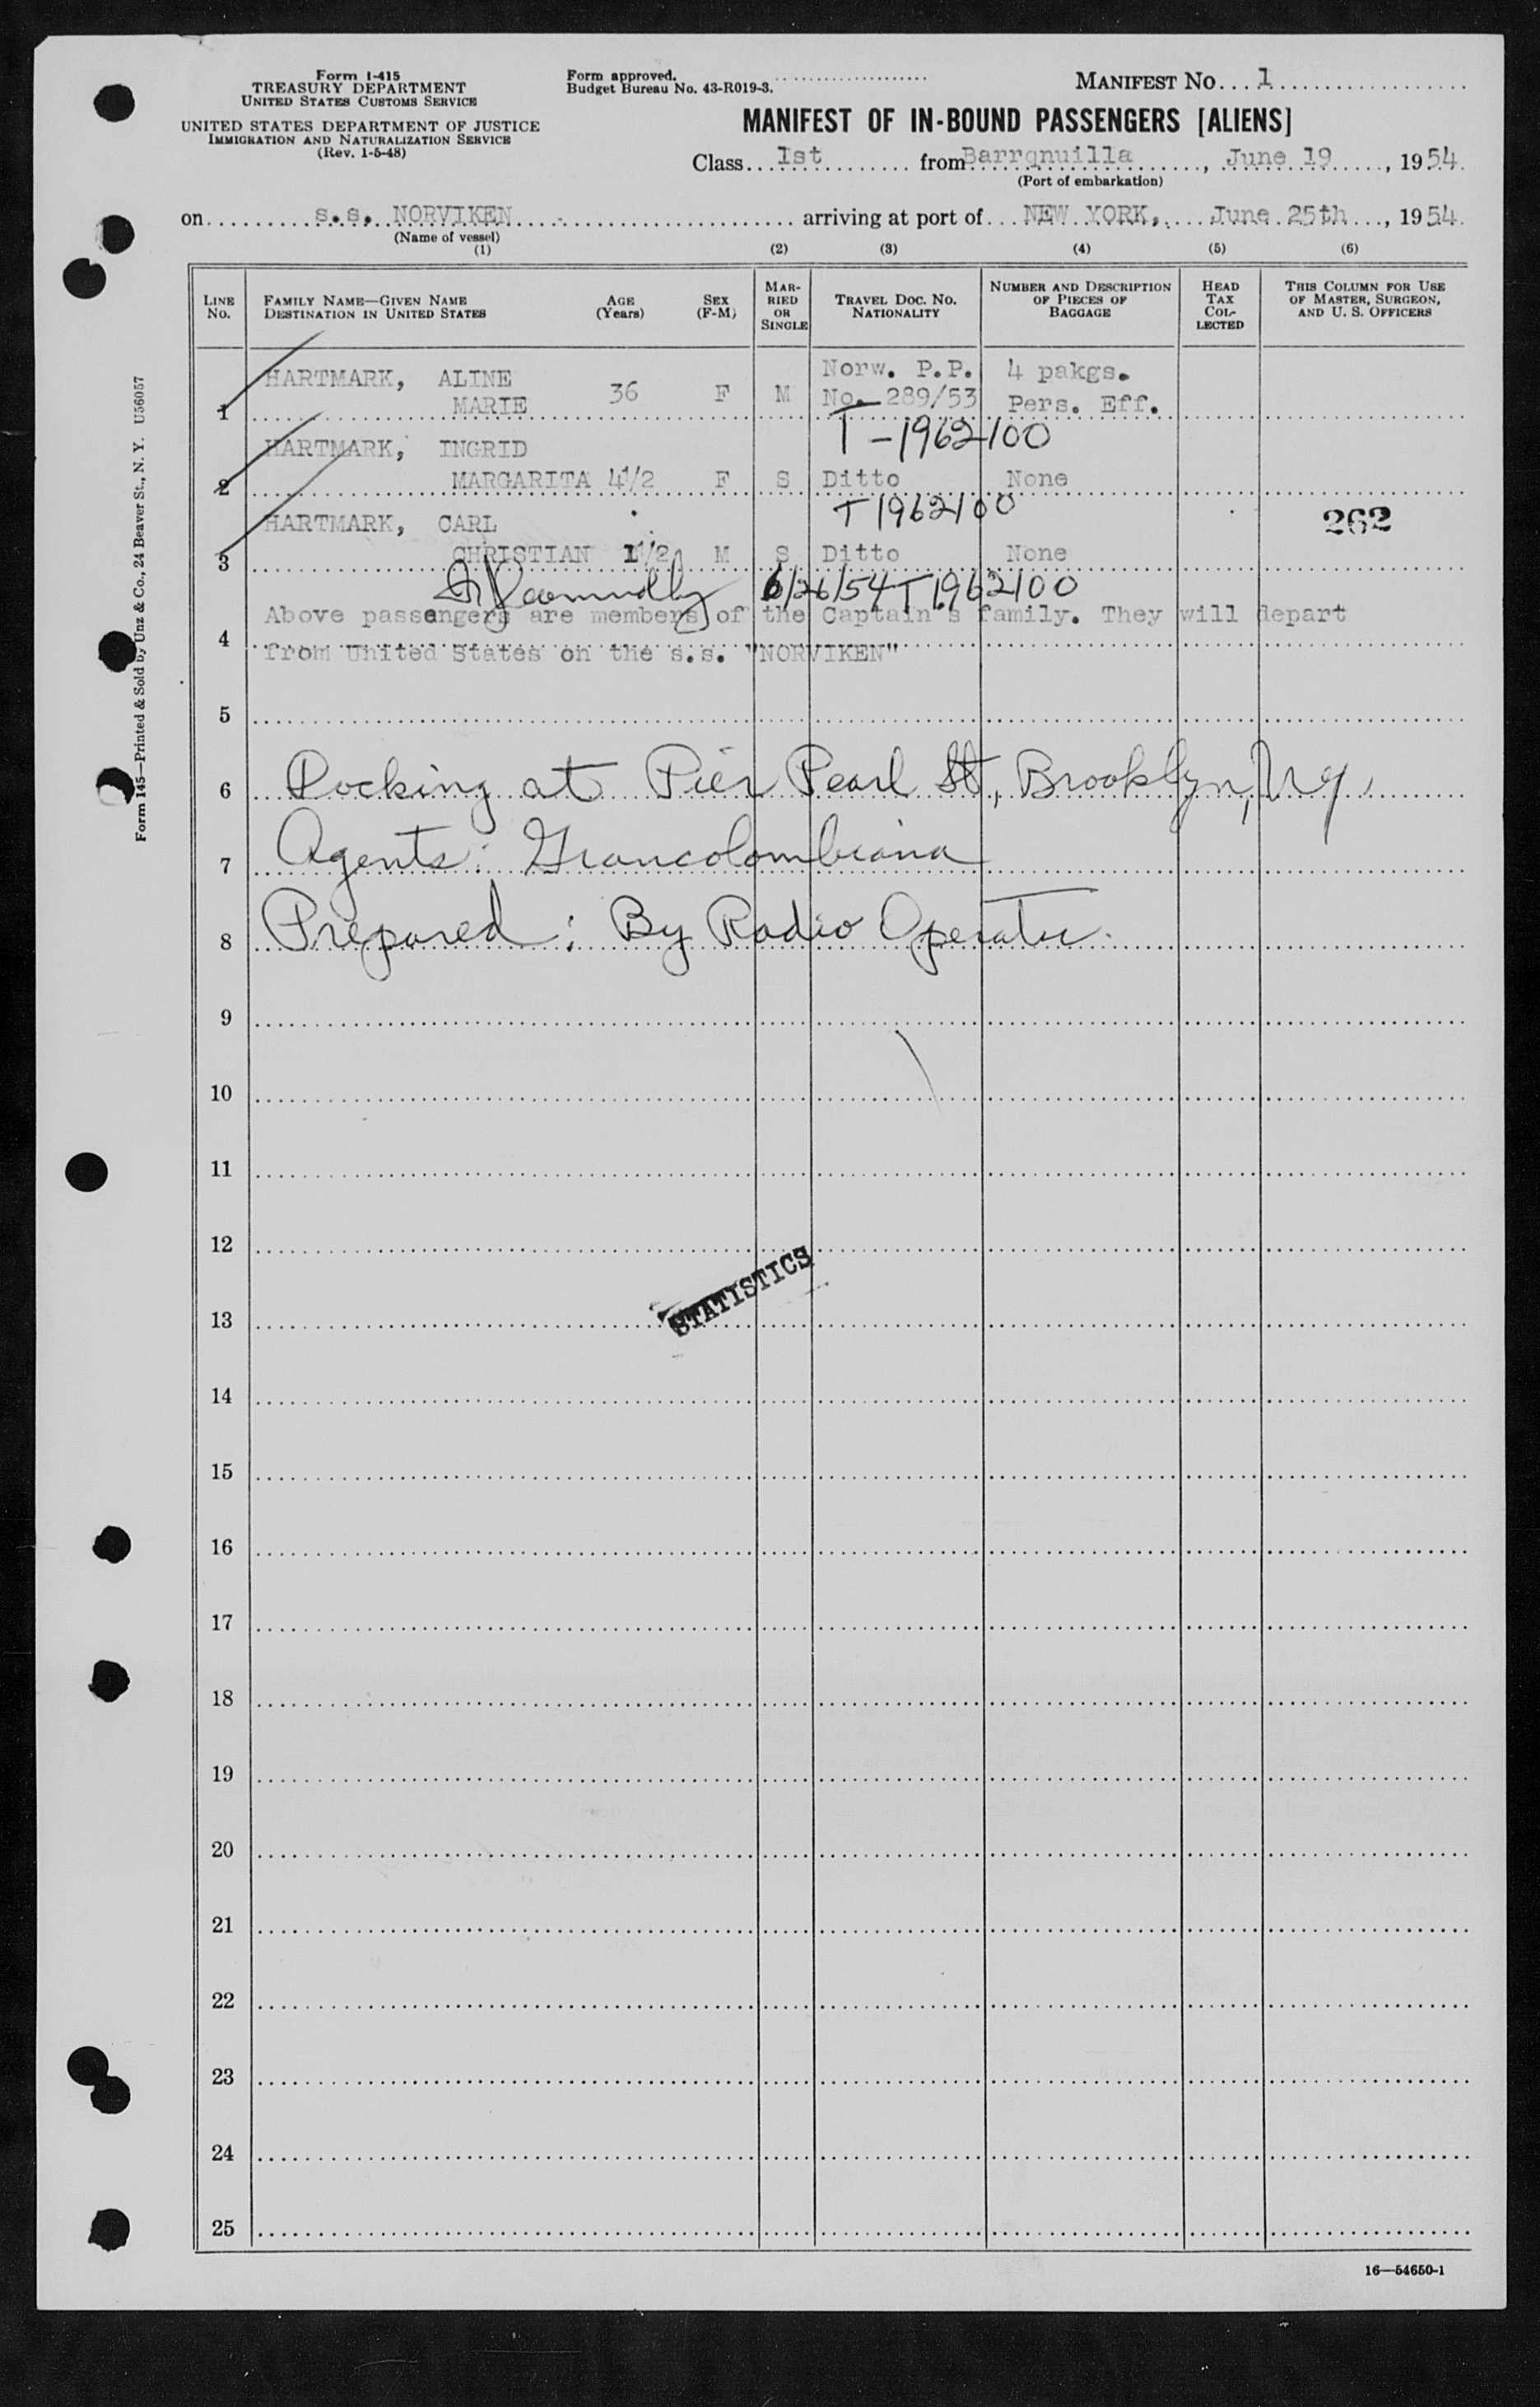 Form I-415
TREASURY DEPARTMENT
UNITED STATES CUSTOMS SERVICE
UNITED STATES DEPARTMENT OF JUSTICE
IMMIGRATION AND NATURALIZATION SERVICE
(Rev. 1-5-48)
Form approved.
Budget Bureau No. 43-R019-3.
MANIFEST NO. 1
MANIFEST OF IN-BOUND PASSENGERS [ALIENS]
Class 1st from Barrqnuilla, June 19, 1954
(Port of embarkation)
on s.s. NORVIKEN arriving at port of NEW YORK, June 25th, 1954
(Name of vessel)
(1) (2) (3) (4) (5) (6)
LINE NO. FAMILY NAME—GIVEN NAME DESTINATION IN UNITED STATES AGE (Years) SEX (F-M) MARRIED OR SINGLE TRAVEL DOC. NO. NATIONALITY NUMBER AND DESCRIPTION OF PIECES OF BAGGAGE HEAD TAX COLLECTED THIS COLUMN FOR USE OF MASTER, SURGEON, AND U. S. OFFICERS
HARTMARK, ALINE Norw. P.P. 4 pakgs.
1 MARIE 36 F M No. 289/53 Pers. Eff.
T-1962100
HARTMARK, INGRID
2 MARGARITA 4½ F S Ditto None
T1962100
HARTMARK, CARL 262
3 CHRISTIAN 1½ M S Ditto None
6/26/54 T1962100
Above passengers are members of the Captain's family. They will depart
4 from United States on the s.s. "NORVIKEN"
5
6 Docking at Pier Pearl St, Brooklyn, NY.
7 Agents: Grancolombiana
8 Prepared: By Radio Operator.
9
10
11
12
STATISTICS
13
14
15
16
17
18
19
20
21
22
23
24
25
16—54650-1
Form 145—Printed & Sold by Unz & Co., 24 Beaver St., N. Y. U56057